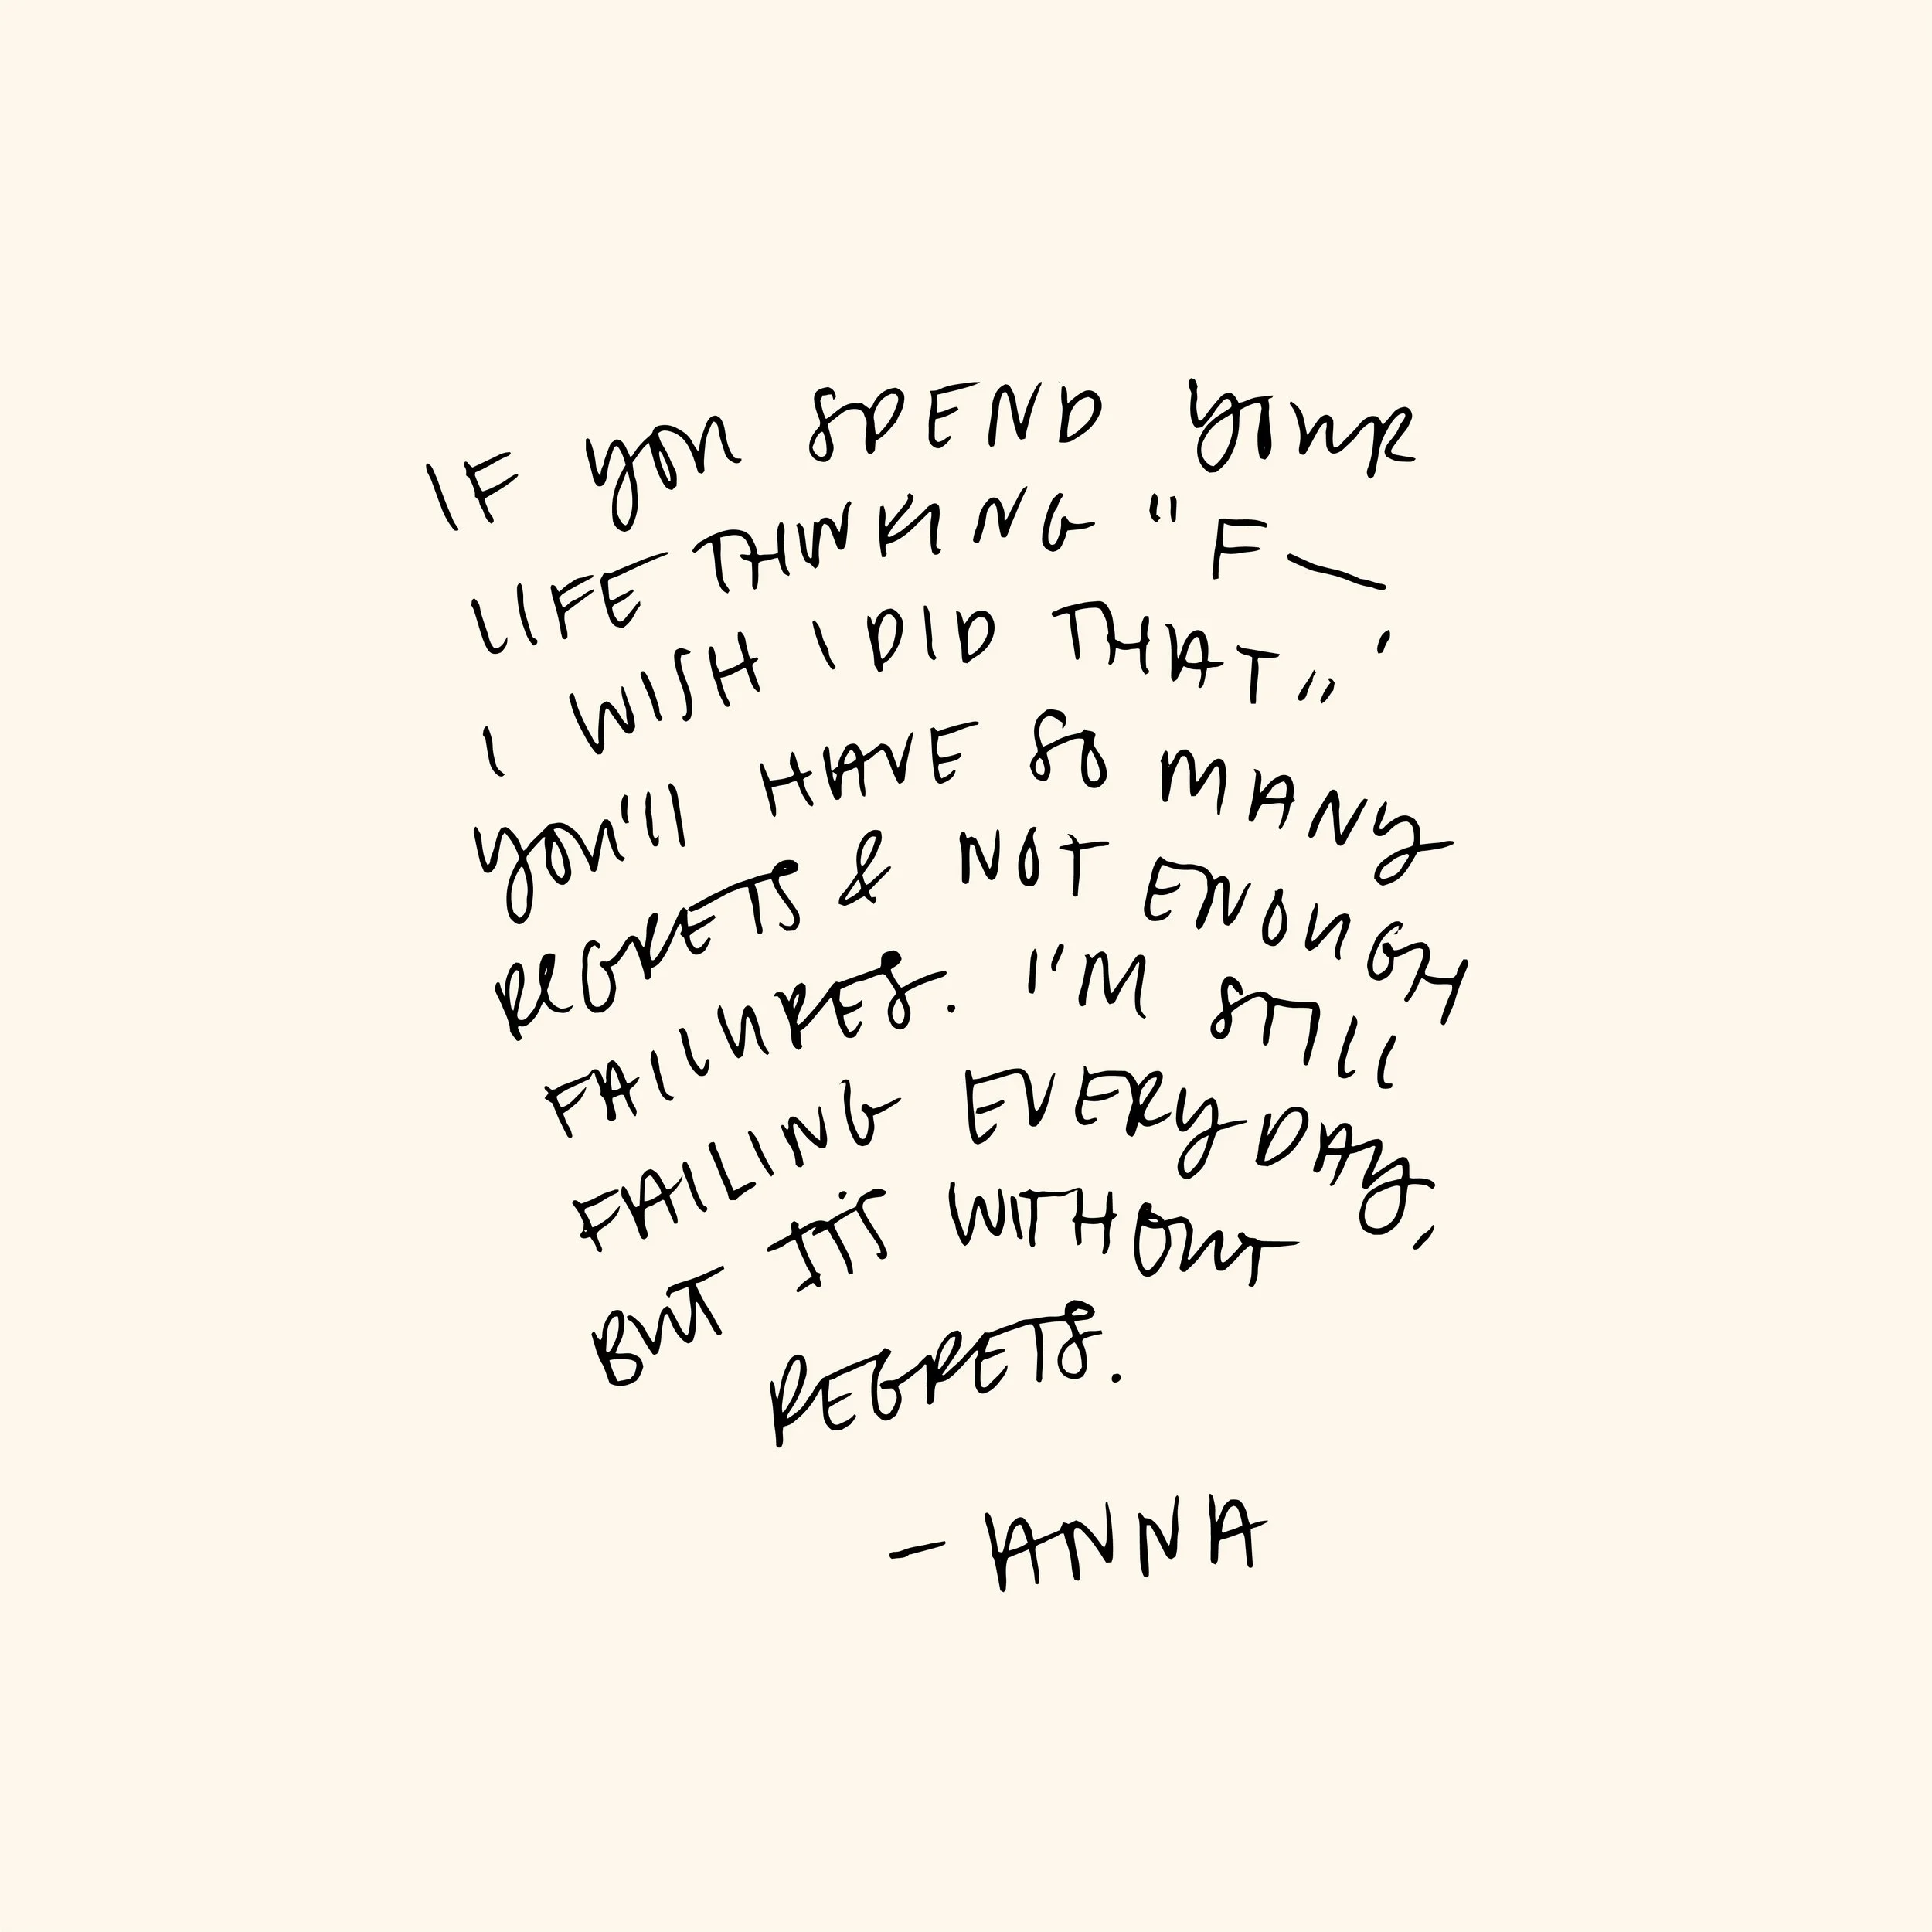 IF you SPEND your
LIFE THINKING "F—
I WISH I DID THAT,"
you'll HAVE SO MANY
REGRETS & NOT ENOUGH
FAILURES. I'M STILL
FAILING EVERYDAY,
BUT IT'S WITHOUT
REGRETS.
— HANNA